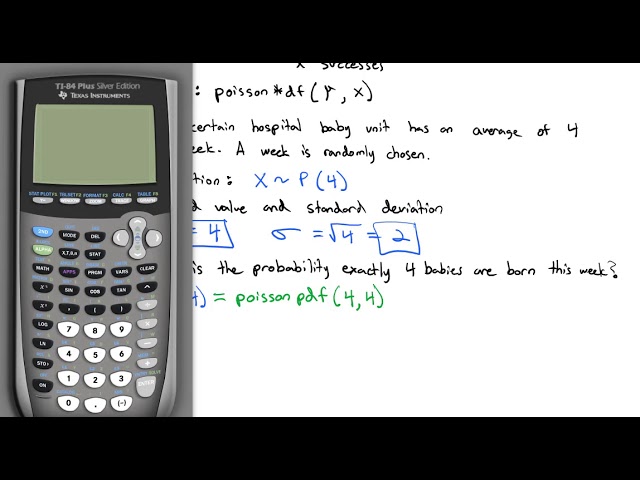 x successes
: poisson*df(μ, x)
certain hospital baby unit has an average of 4
eek. A week is randomly chosen.
tion: X ~ P(4)
d value and standard deviation
= 4 σ = √4 = 2
is the probability exactly 4 babies are born this week?
4) = poissonpdf(4,4)
TI-84 Plus Silver Edition
TEXAS INSTRUMENTS
STAT PLOT F1 TBLSET F2 FORMAT F3 CALC F4 TABLE F5
Y= WINDOW ZOOM TRACE GRAPH
2ND MODE DEL
ALPHA X,T,θ,n STAT
MATH APPS PRGM VARS CLEAR
SIN COS TAN
LOG 7 8 9
LN 4 5 6
STO 1 2 3
ON 0 . (-) ENTER